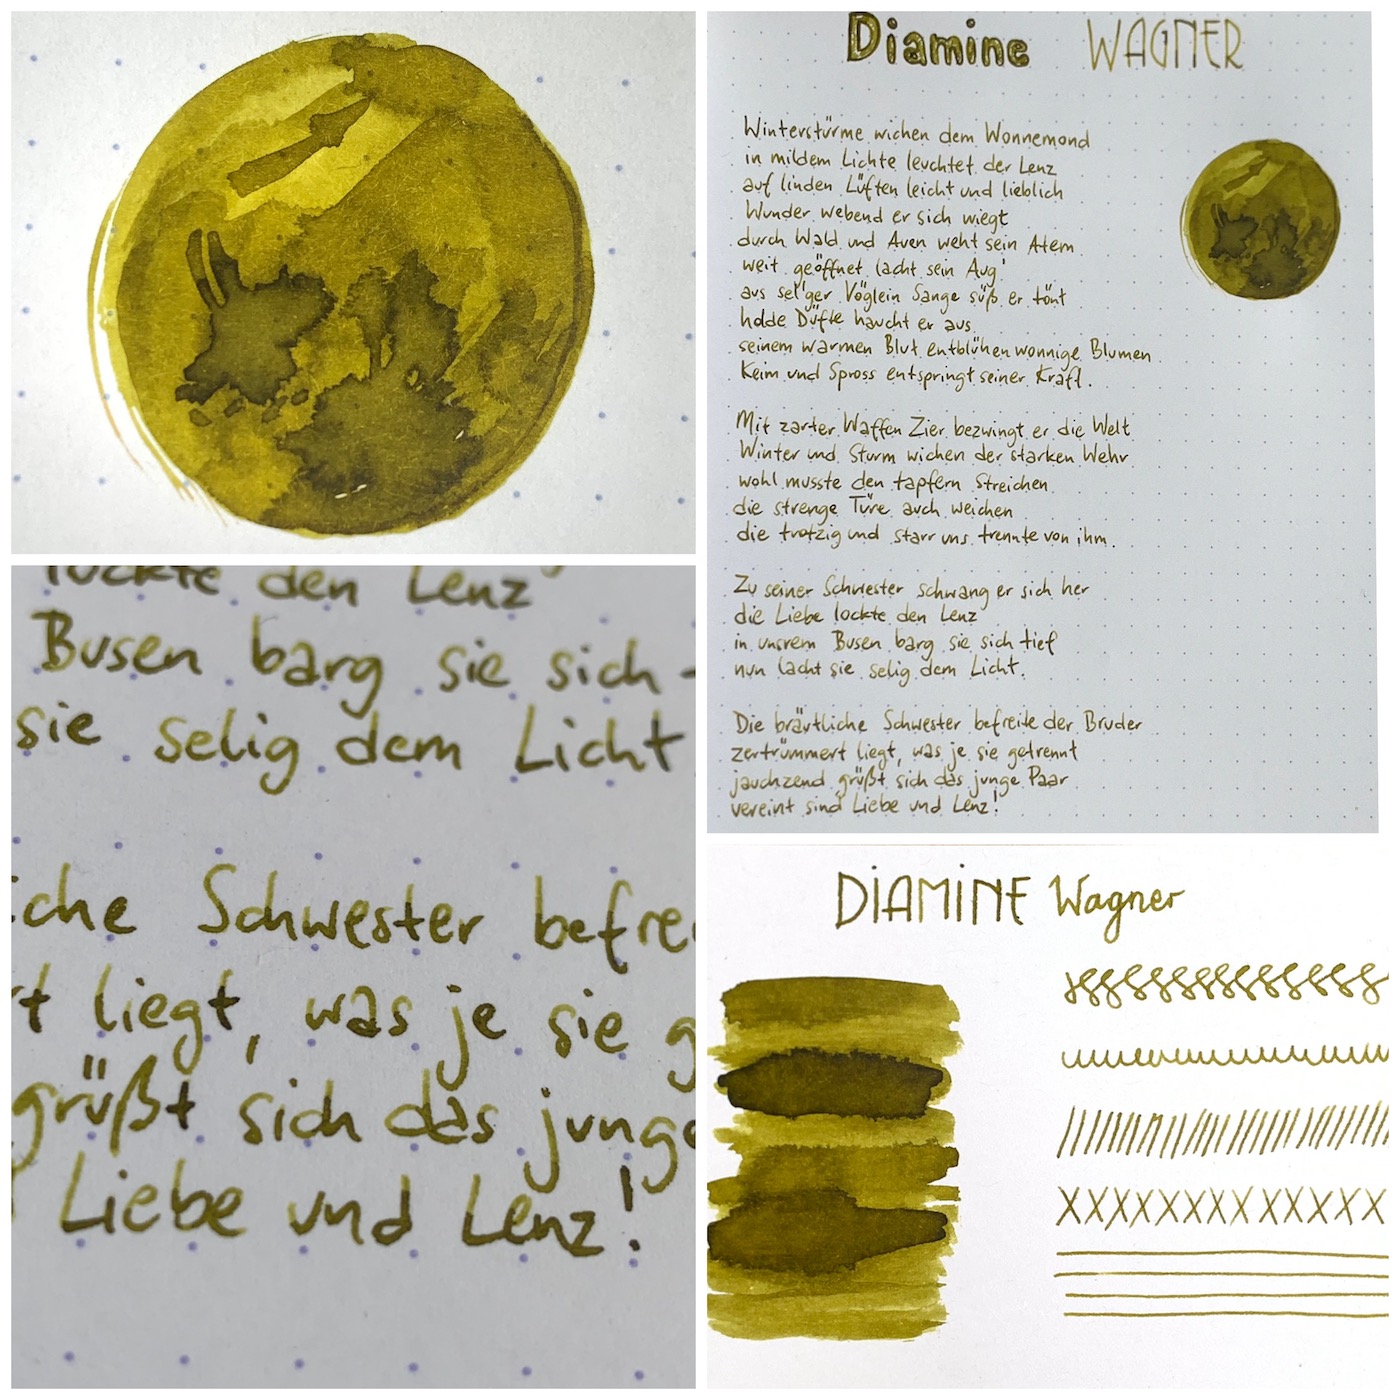 Diamine WAGNER
Winterstürme wichen dem Wonnemond
in mildem Lichte leuchtet der Lenz
auf linden Lüften leicht und lieblich
Wunder webend er sich wiegt
durch Wald und Auen weht sein Atem
weit geöffnet lacht sein Aug'
aus sel'ger Vöglein Sange süß er tönt
holde Düfte haucht er aus
seinem warmen Blut entblühen wonnige Blumen
Keim und Spross entspringt seiner Kraft.
Mit zarter Waffen Zier bezwingt er die Welt
Winter und Sturm wichen der starken Wehr
wohl musste den tapfern Streichen
die strenge Türe auch weichen
die trotzig und starr uns trennte von ihm.
Zu seiner Schwester schwang er sich her
die Liebe lockte den Lenz
in unsrem Busen barg sie sich tief
nun lacht sie selig dem Licht.
Die bräutliche Schwester befreite der Bruder
zertrümmert liegt, was je sie getrennt
jauchzend grüßt sich das junge Paar
vereint sind Liebe und Lenz!
lockte den Lenz
Busen barg sie sich
sie selig dem Licht
iche Schwester befrei
rt liegt, was je sie g
grüßt sich das junge
Liebe und Lenz!
DIAMINE Wagner